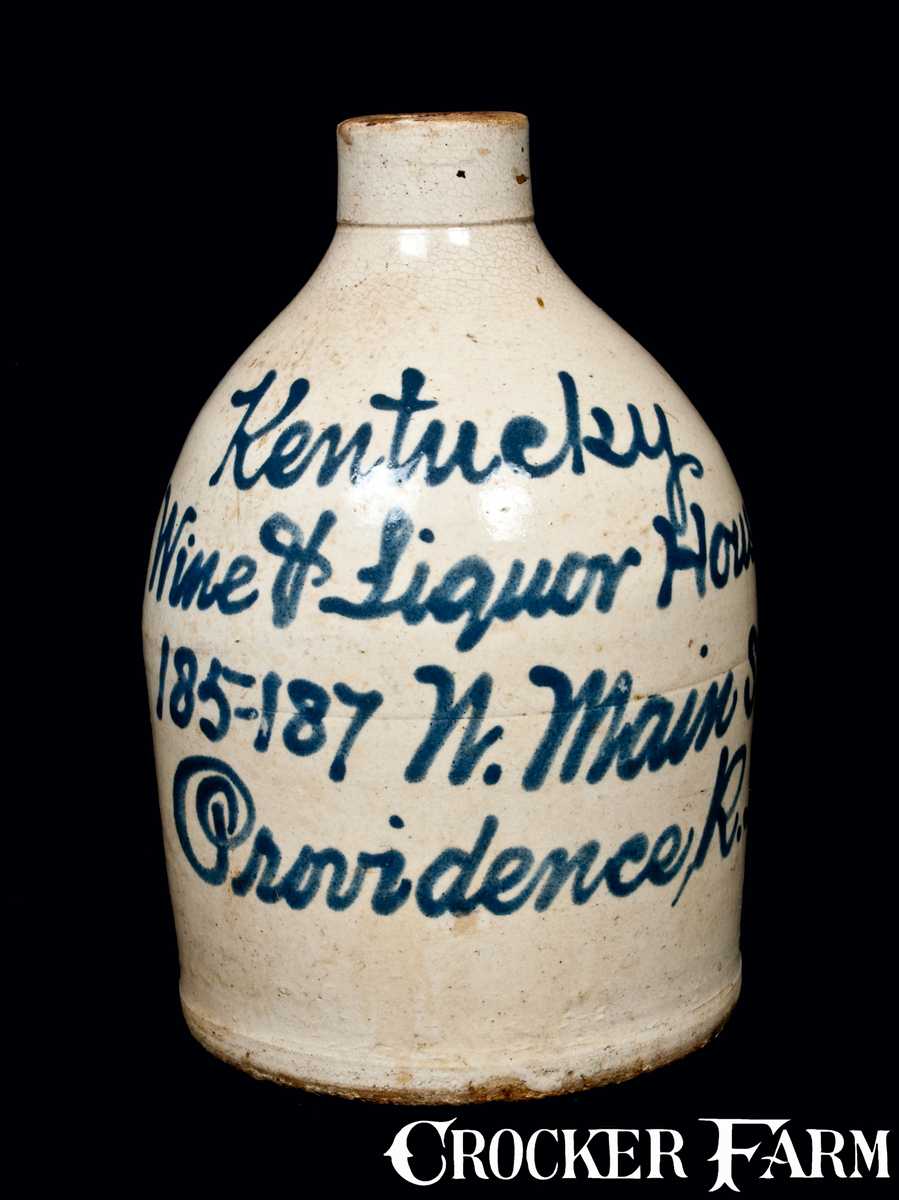 Kentucky
Wine & Liquor Hou
185-187 N. Main S
Providence, R.
CROCKER FARM